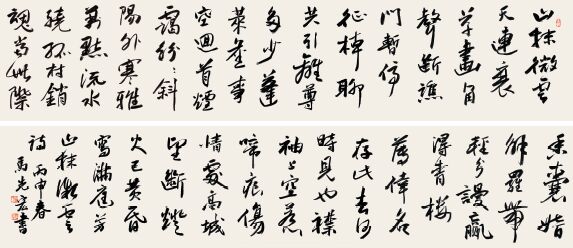 山抹微雲
天連衰
草畫角
聲斷譙
門暫停
征棹聊
共引離尊
多少蓬
萊舊事
空回首煙
靄紛〻斜
陽外寒雅
萬點流水
繞孤村銷
魂當此際
香囊暗
解羅帶
輕分謾贏
得青樓
薄倖名
存此去何
時見也襟
袖上空惹
啼痕傷
情處高城
望斷燈
火已黃昏
寫滿庭芳
山抹微雲
詩丙申春
馬光宏書